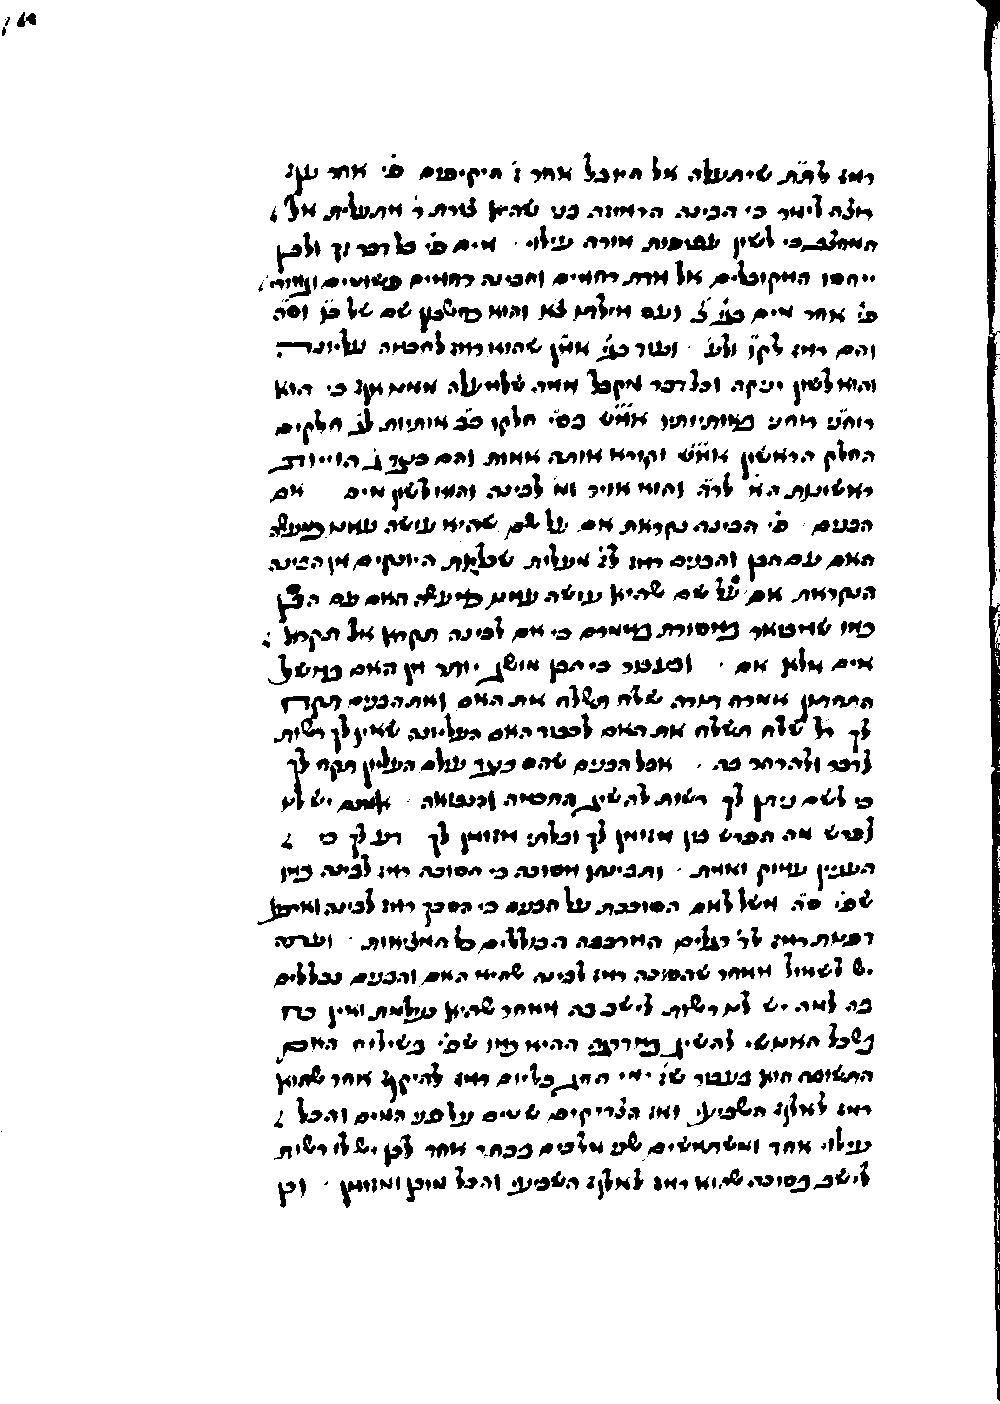 רמז לת"ת שיתעלה אל היובל אחר ז' היקיפים פי' אחר ענין
רוצה לומר כי הבינה הרמוזה בם שהיא צורת ר' מתעלית אל
המחשבה כי לשון עממות מורה עילוי · מים פי' כל דבר זך ולכן
ייחסו המקובלים אל מדת רחמים והבינה רחמים פשוטים וגמורים
פי' אחר מים בגי' צ' ועם מילואו צא והוא כחשבון שם של מ"ן וס"ה
והם רמז לק"ו ול"ע · ועוד בגי' אמן שהוא רמז לחכמה עליונה
והוא לשון יניקה וכל דבר מקבל ממה שלמעלה ממנו ועוד כי הוא
רוח"ני רוחני באותיותיו אמ"ש בס"י חלקו כ"ב אותיות לג' חלקים
החלק הראשון אמ"ש וקורא אותם אמות והם כנגד ג' הויות
ראשונות הא' לר"ה והוא אויר ומ' לבינה והוא לשון מים אם
הבנים · פי' הבינה נקראת אם על שם שהיא עושה עמנו כמעשה
האם עם הבן והבנים רמז לז' מעלות שכולם היונקים מן הבינה
הנקראת אם על שם שהיא עושה עמנו כמעשה האם עם הבן
כמו שמבואר במסורת במאמרם כי אם לבינה תקרא אל תקרא
אים אלא אם · ובעבור כי הבן מושג יותר מן האם במשל
התחתון אמרה תורה שלח תשלח את האם ואת הבנים תקח
לך ר"ל שלח תשלח את האם לכבוד האם העליונה שאין לך רשות
לדבר ולהרהר בה · אבל הבנים שהם כנגד עולם העליון תקח לך
כי לשם ניתן לך רשות להשיג בחכמה ובנבואה · אמנם יש לנו
לפרש מה הפרש בין מזומן לך ובלתי מזומן לך דע לך כי
העניין עמוק ואמת · ותבינהו מסוכה כי הסוכה רמז לבינה כמו
שפי' ס"ה משל לאם הסוככת על הבנים כי הסכך רמז לבינה ומארבע
דפנות רמז לד' רגלים המרכבה הכוללים כל המציאות · ועתה
יש לשאול מאחר שהסוכה רמז לבינה שהיא האם והבנים נכללים
בה למה יש לנו רשות לישב בה מאחר שהיא נעלמת ואין כח
בשכל האנושי להשיג במדרגה ההיא כמו שפי' בשילוח האם
התשובה הוא בעבור שז' ימי החג בכל יום רמז להיקף אחר שהוא
רמז לאלף השביעי ואז הצדיקים שטים על פני המים והכל
עילוי אחד ומשתמשים שני מלכים בכתר אחד לכן יש לו רשות
לישב בסוכה שהוא רמז לאלף השביעי והכל מוכן ומזומן · וכן